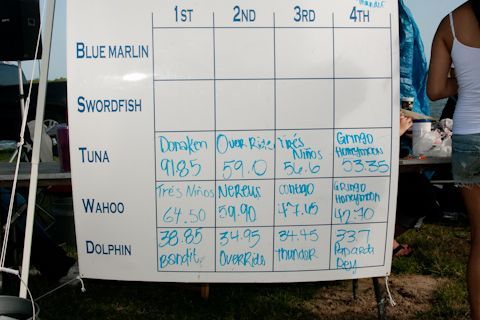 thunder
1ST 2ND 3RD 4TH
BLUE MARLIN
SWORDFISH
TUNA Donaken 91.85 OverRide 59.0 Trés Niños 56.6 Gringo Honeymoon 53.35
WAHOO Trés Niños 64.50 Nereus 59.90 47.45 Gringo Honeymoon 42.70
DOLPHIN 38.85 Bandit 34.95 OverRide 34.45 Thunder 33.7